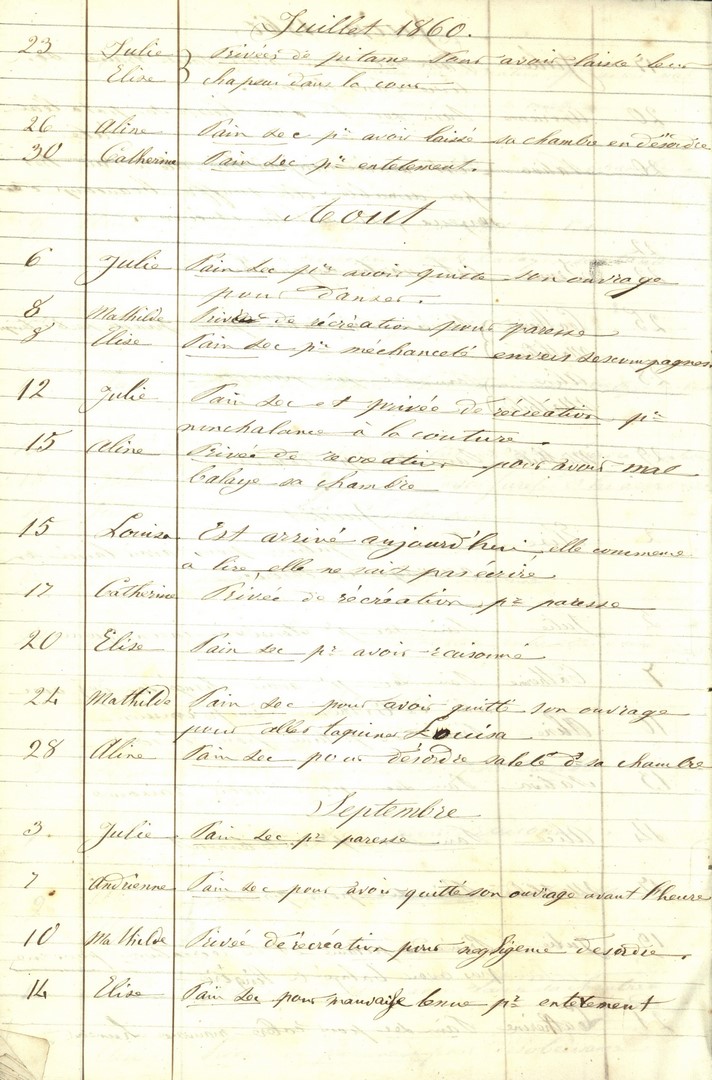 Juillet 1860.
23 Julie Privées de pitance pour avoir laissé leur
Elise chapeau dans la cour
26 Aline Pain sec pr avoir laissé sa chambre en désordre
30 Catherine Pain sec pr entetement.
Aout
6 Julie Pain sec pr avoir quitté son ouvrage
pour danser.
8 Mathilde Privée de récréation pour paresse
8 Elise Pain sec pr méchanceté envers ses compagnes
12 Julie Pain sec et privée de récréation pr
nonchalance à la couture.
15 Aline Privée de recreation pour avoir mal
balayé sa chambre
15 Louisa Est arrivé aujourd'hui elle commence
à lire, elle ne sait pas écrire
17 Catherine Privée de récréation pr paresse
20 Elise Pain sec pr avoir raisonné
24 Mathilde Pain sec pour avoir quitté son ouvrage
pour aller Louisa
28 Aline Pain sec pour désordre saleté de sa chambre
Septembre
3. Julie Pain sec pr paresse
7 Andrienne Pain sec pour avoir quitté son ouvrage avant l'heure
10 Mathilde Privée de récréation pour negligence desordre.
14 Elise Pain sec pour mauvaise tenue pr entetement